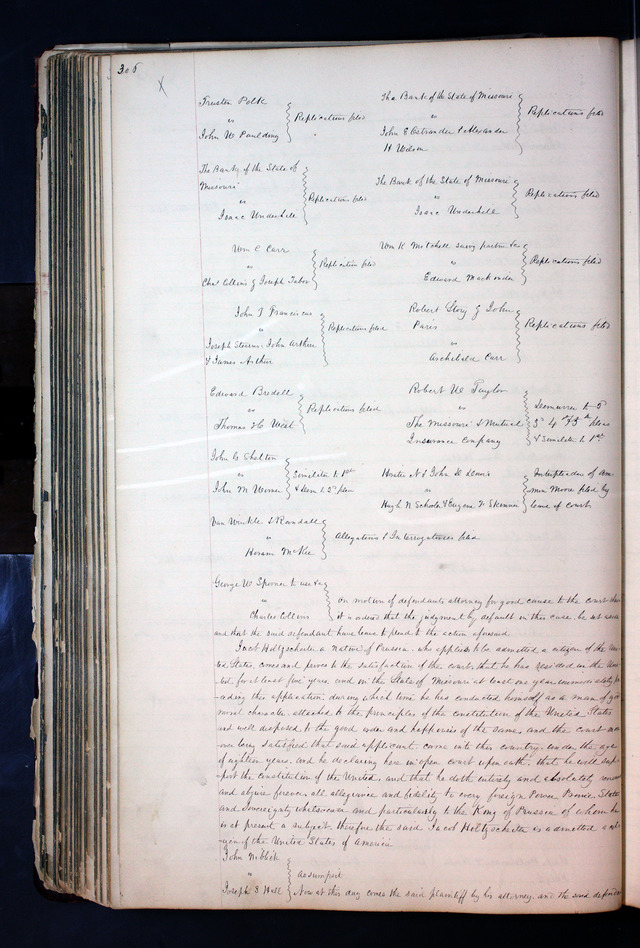 306
Trusten Polk
vs
John W Paulding
Replications filed
The Bank of the State of Missouri
vs
John E Ostrander & Alexander
H Wilson
Replications filed
The Bank of the State of
Missouri
vs
Isaac Underhill
Replications filed
The Bank of the State of Missouri
vs
Isaac Underhill
Replications filed
Wm C Carr
vs
Chas Collins & Joseph Tabor
Replication filed
Wm K Mitchell surv partner &c
vs
Edward
Replications filed
John J
vs
Joseph Stevens, John Arthur
& James Arthur
Replications filed
Robert Story & John
Paris
vs
Archibald Carr
Replications filed
Edward Bredell
vs
Thomas West
Replications filed
Robert W Taylor
vs
The Missouri & Mutual
Insurance Company
Demurrer to
3d 4 & 5th pleas
& Similiter to 1st
John G Shelton
vs
John M Werner
Similiter to 1st
& Dem to 2d plea
Hunter N & John D Lewis
vs
Hugh N & Eugene Skinner
Interpleader of
Moore filed by
leave of court
Van Winkle & Randall
vs
Hiram McKee
Allegations & Interrogatories filed
George W Spooner to use &c
vs
Charles Collins
on motion of defendants attorney for good cause to the court
it is ordered that the judgment by default in this case be set aside
and that the said defendant have leave to plead to the action aforesaid
Jacob Holtzscheiter a native of Prussia who applies to be admitted a citizen of the Uni-
ted States, comes and proves to the satisfaction of the court, that he has resided in the Uni-
ted for at least five years, and in the State of Missouri at least one year immediately pre-
ceding this application, during which time he has conducted himself as a man of good
moral character, attached to the principles of the constitution of the United States
and well disposed to the good order and happiness of the same, and the court mo-
over being satisfied that said applicant came into this country under the age
of eighteen years, and he declaring here in open court upon oath, that he will sup-
port the constitution of the United, and that he doth entirely and absolutely renounce
and abjure forever all allegiance and fidelity to every foreign Power Prince State
and Sovereignty whatsoever and particularly to the King of Prussia of whom he
is at present a subject, therefore the said Jacob Holtzscheiter is admitted a citi-
zen of the United States of America.
John
vs
Joseph S Hull
assumpsit
Now at this day comes the said plaintiff by his attorney, and the said defendant